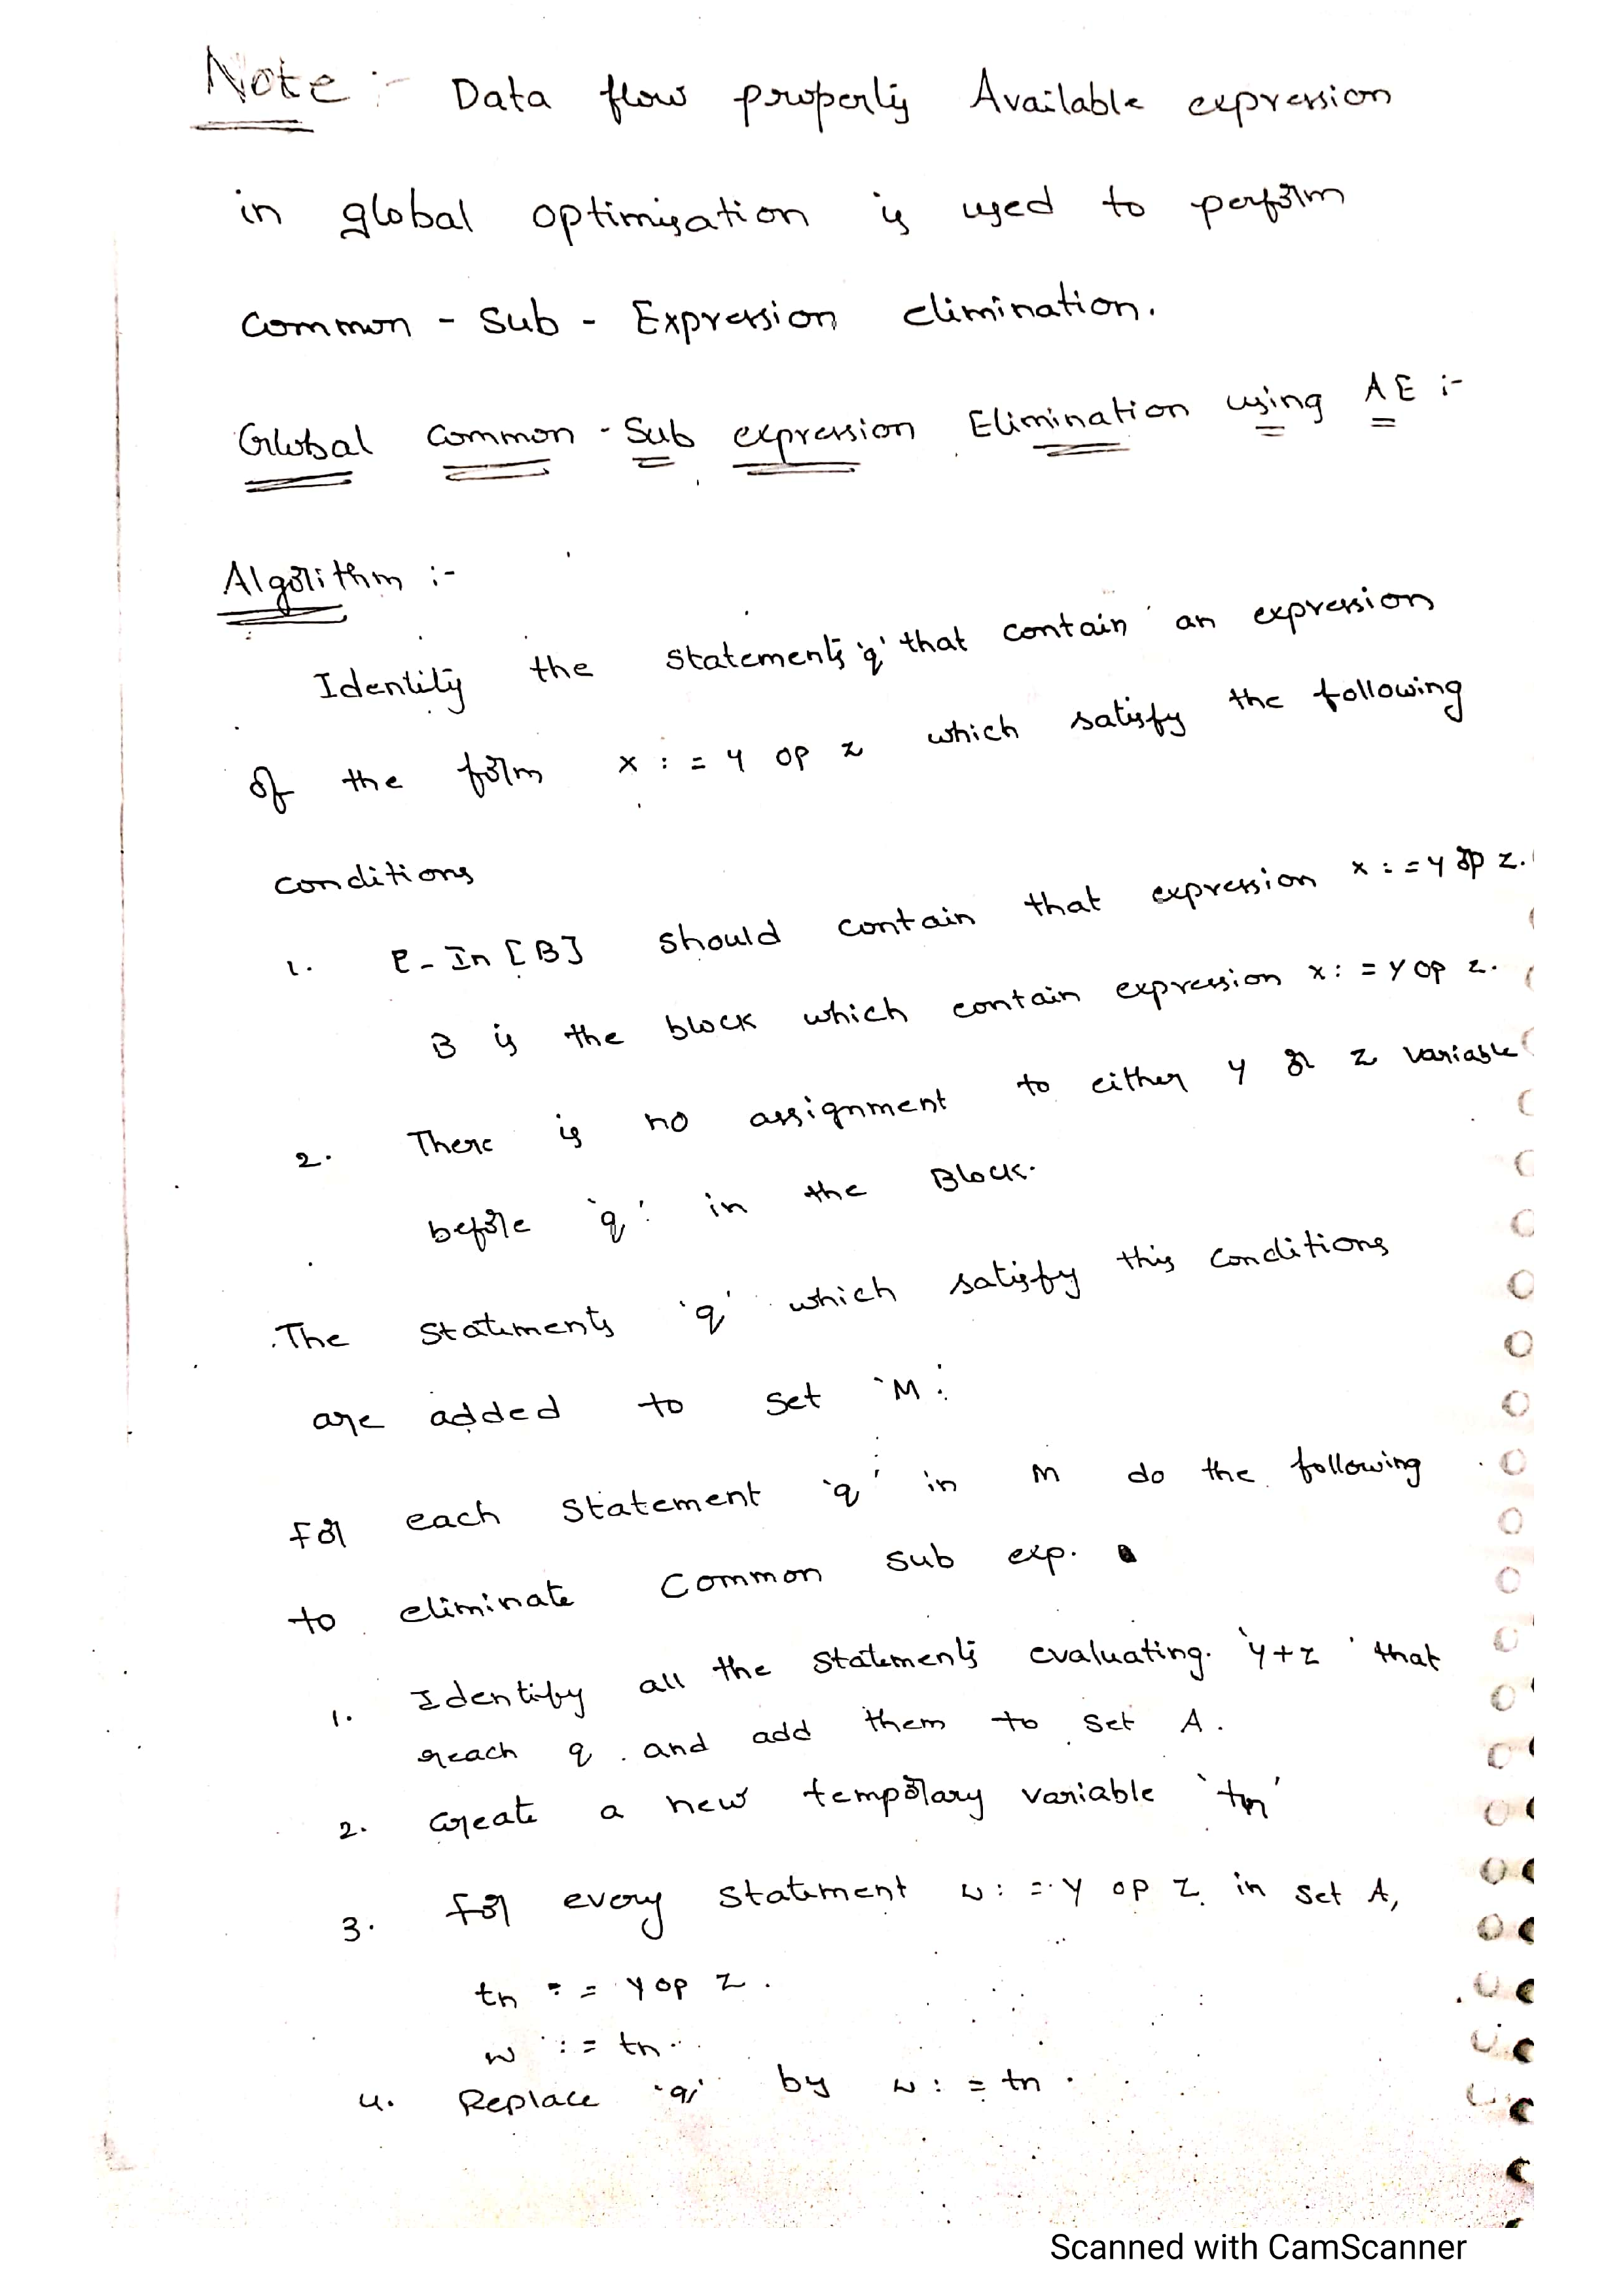 Note :- Data flow property Available expression
in global optimisation is used to perform
common - sub - Expression elimination.
Global common - Sub expression Elimination using AE :-
Algorithm :-
Identify the statements 'q' that contain an expression
of the form x := y op z which satisfy the following
conditions
1. E-In [B] should contain that expression x := y op z.
B is the block which contain expression x := y op z.
2. There is no assignment to either y or z variable
before 'q' in the Block.
The statements 'q' which satisfy this conditions
are added to set 'M'.
For each statement 'q' in M do the following
to eliminate Common sub exp.
1. Identify all the statements evaluating 'y+z' that
reach q and add them to set A.
2. Create a new temporary variable 'tn'
3. For every statement w := y op z in set A,
tn := y op z.
w := tn.
4. Replace 'q' by w := tn.
Scanned with CamScanner